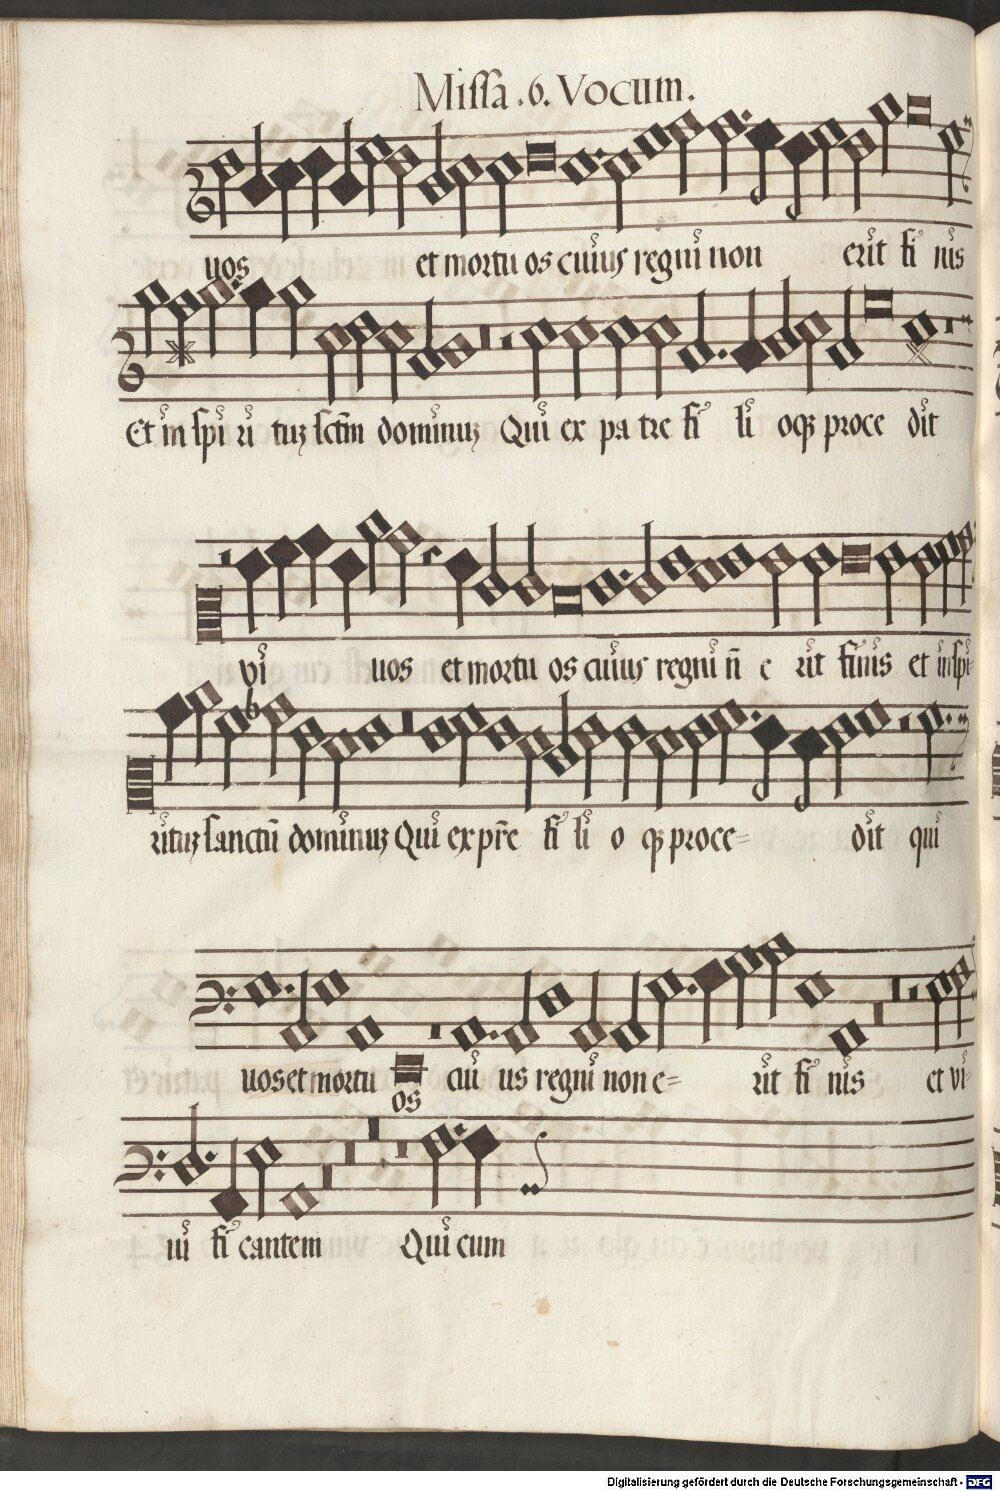 Missa .6. Vocum.
uos et mortu os cuius regni non erit fi nis
Et in spi ri tuz sctm dominuz Qui ex pa tre fi li oqz proce dit
vi uos et mortu os cuius regni n̄ e rit finis et in spi-
rituz sanctū dominuz Qui ex pr̄e fi li o qz proce= dit qui
uos et mortu os cui us regni non e= rit fi nis et vi-
ui fi cantem Qui cum
Digitalisierung gefördert durch die Deutsche Forschungsgemeinschaft - DFG